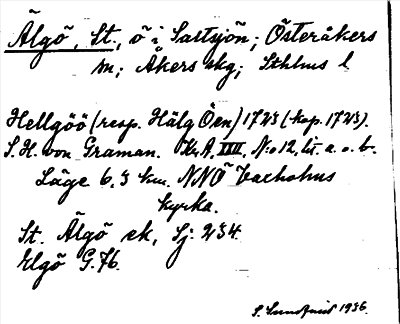 Älgö, St., ö i Saltsjön; Österåkers
sn; Åkers skg; Sthlms l
Hellgöö (resp. Hälg Öen) 1723 (kop. 1723).
S. H. von Graman. Kr. A. XXII. N:o 12, lit. a. o. b.
Läge 6,5 km. NNÖ Vaxholms
kyrka.
St. Älgö ek, Sj: 234.
Elgö G. 76.
S. Sundqvist 1936.